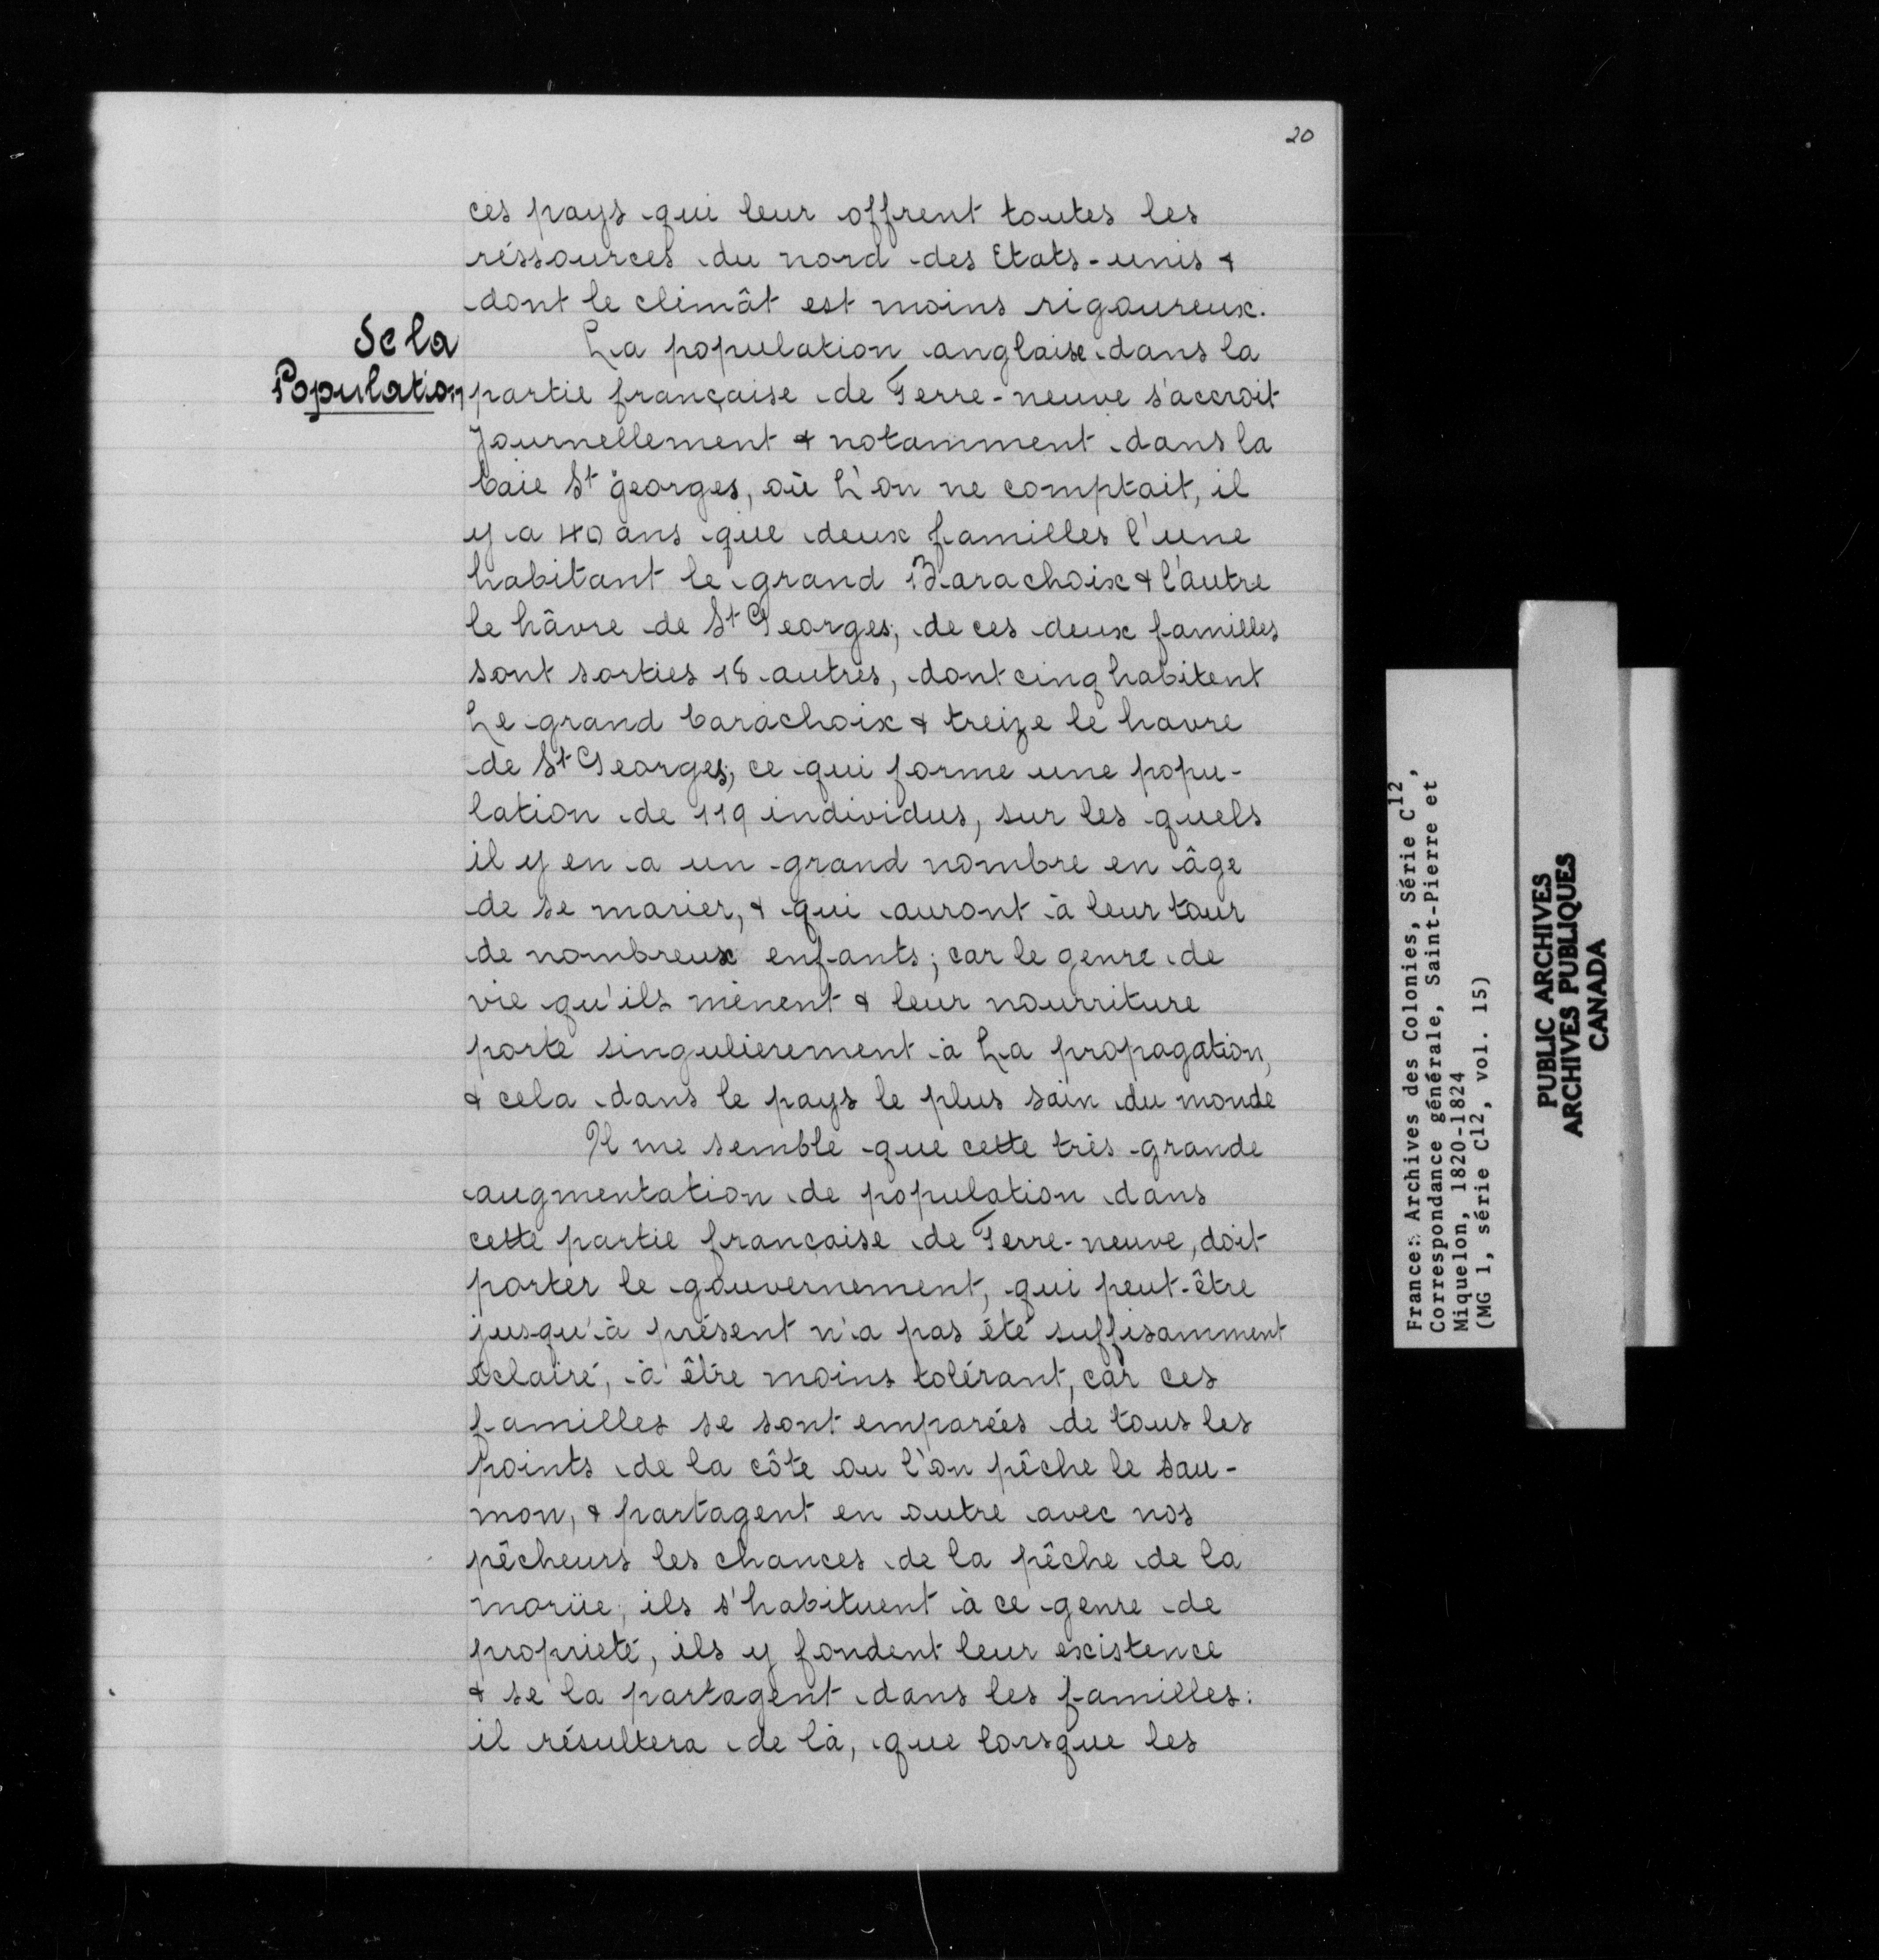 20
ces pays qui leur offrent toutes les
réssources du nord des Etats-unis &
dont le climât est moins rigoureux.
De la
Population
La population anglaise dans la
partie française de Terre-neuve s'accroit
Journellement & notamment dans la
baie St georges, où L'on ne comptait, il
y a 40 ans que deux familles l'une
habitant le grand Barachoix & l'autre
le hâvre de St Georges; de ces deux familles
sont sorties 18 autres, dont cinq habitent
Le grand barachoix & treize le havre
de St Georges; ce qui forme une popu-
lation de 119 individus, sur les quels
il y en a un grand nombre en âge
de se marier, & qui auront à leur tour
de nombreux enfants; car le genre de
vie qu'ils mènent & leur nourriture
porte singulierement à La propagation,
& cela dans le pays le plus sain du monde
Il me semble que cette très grande
augmentation de population dans
cette partie française de Terre-neuve, doit
porter le gouvernement, qui peut-être
jusqu'à présent n'a pas été suffisamment
éclairé, à être moins tolérant, car ces
familles se sont emparées de tous les
Points de la côte ou l'on pêche le sau-
mon, & partagent en outre avec nos
pêcheurs les chances de la pêche de la
morüe; ils s'habituent à ce genre de
proprieté, ils y fondent leur existence
& se la partagent dans les familles:
il résultera de là, que lorsque les
France: Archives des Colonies, Série C12,
Correspondance générale, Saint-Pierre et
Miquelon, 1820-1824
(MG 1, série C12, vol. 15)
PUBLIC ARCHIVES
ARCHIVES PUBLIQUES
CANADA